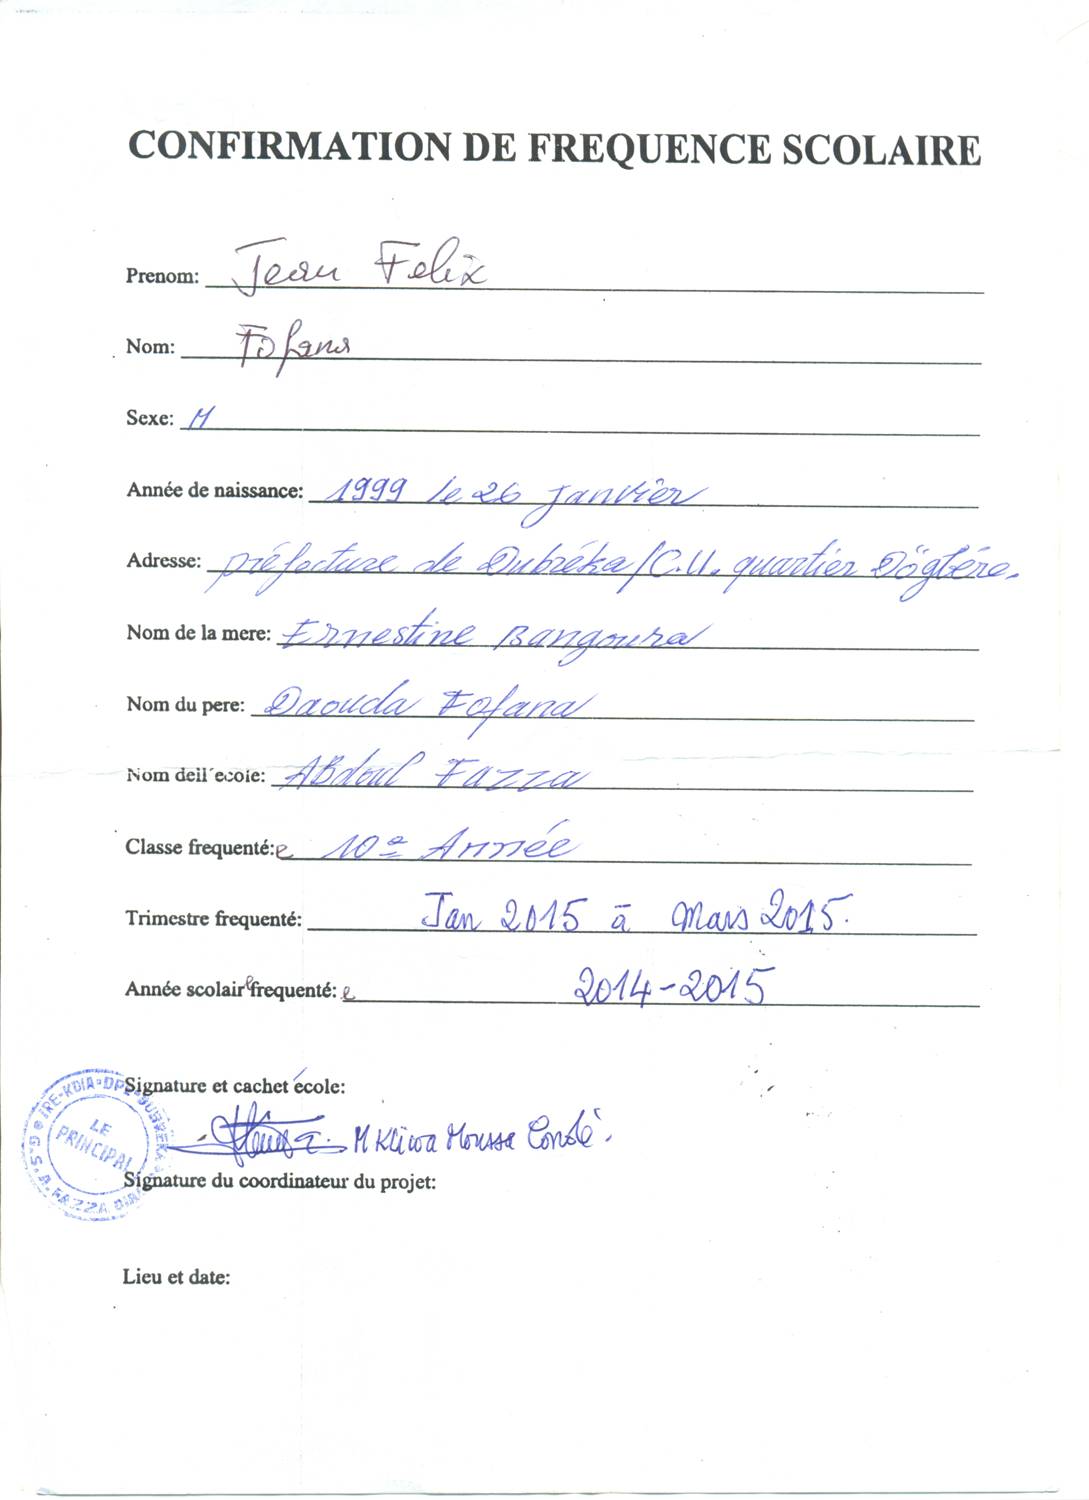 CONFIRMATION DE FREQUENCE SCOLAIRE
Prenom: Jean Felix
Nom: Fofana
Sexe: M
Année de naissance: 1999 le 26 janvier
Adresse: préfecture de Dubréka/C.U. quartier
Nom de la mere: Ernestine Bangoura
Nom du pere: Daouda Fofana
Nom deil´ecole: ABdoul Fazza
Classe frequenté:e 10e Année
Trimestre frequenté: Jan 2015 à Mars 2015.
Année scolaire frequenté: e 2014-2015
Signature et cachet école:
IRE-KDIA-DPE-DUBREKA
LE PRINCIPAL
G.S.A. FAZZA
M Moussa Condé.
Signature du coordinateur du projet:
Lieu et date: